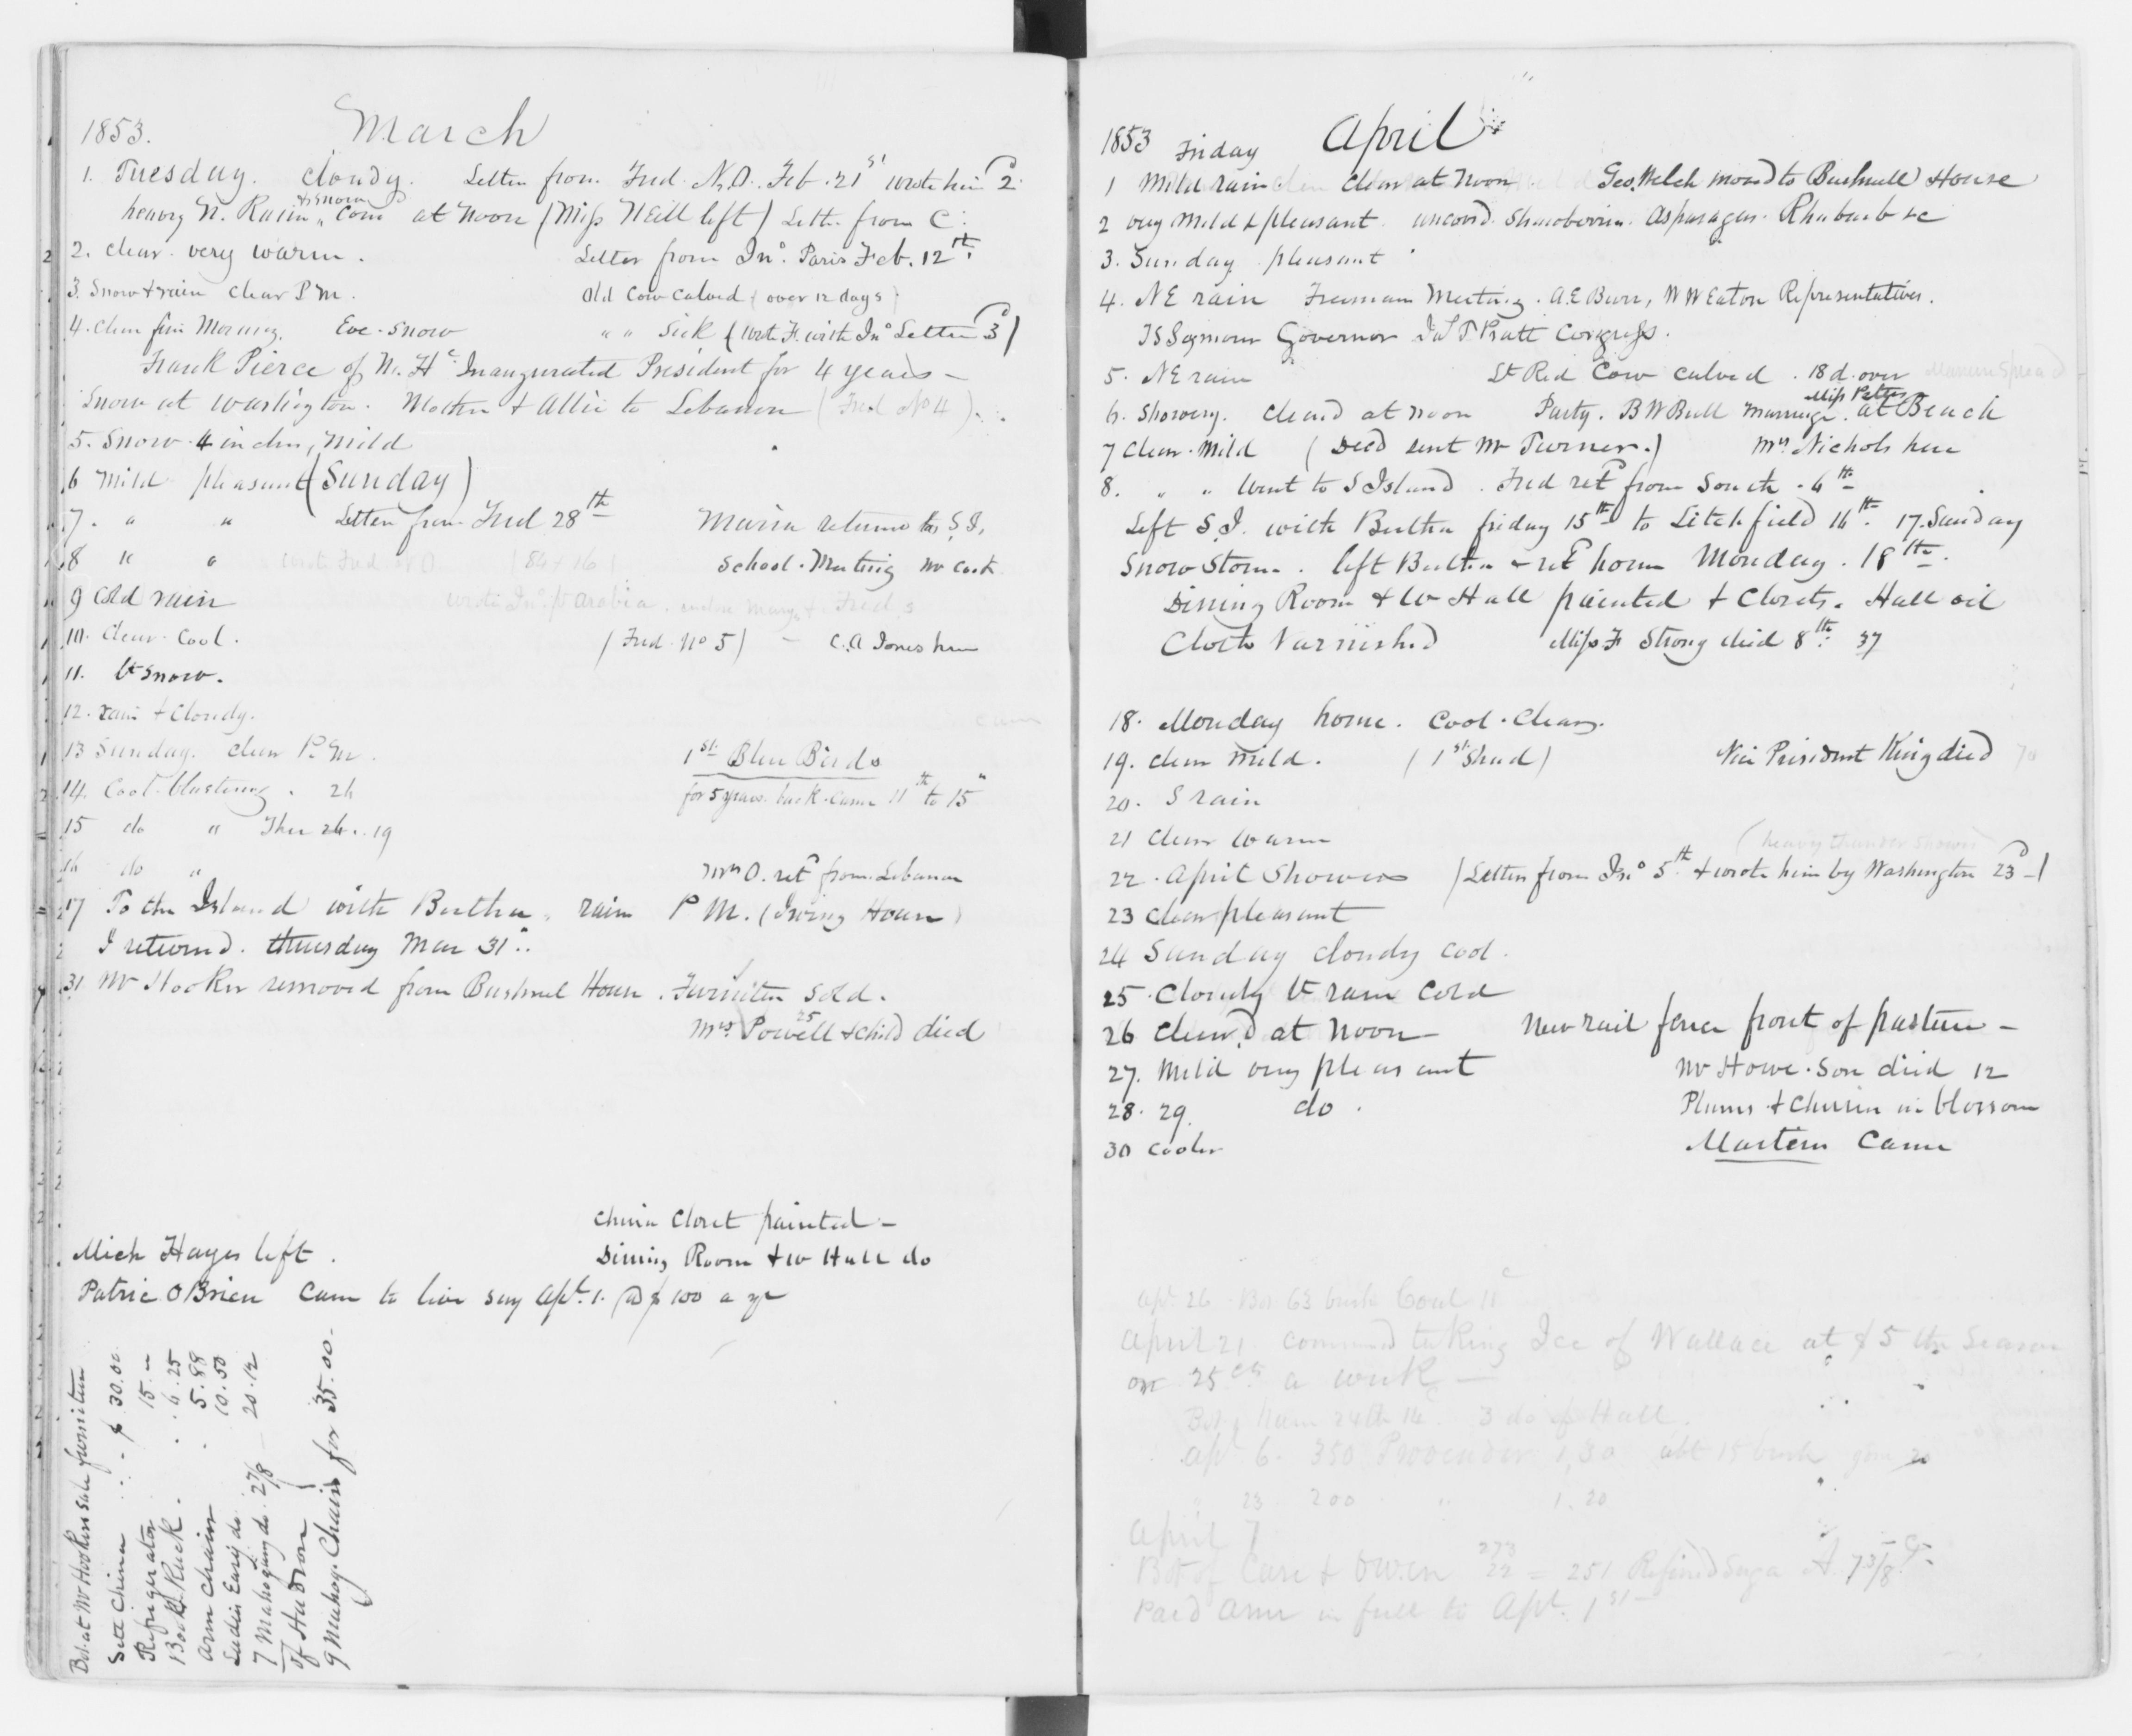 1853. March
1. Tuesday. cloudy. Letter from Fred. N.O. Feb. 21st wrote him 2d
heavy N. Rain & snow, Com at Noon (Miss Neill left) Lettr from C.
2. clear very warm. Letter from Jno. Paris Feb. 12th
3. Snow & rain clear P M. Old Cow Calved (over 12 days)
4. Clear fine Morning. Eve. snow " " Sick (Wrote F. with Jno Letter 3d)
Frank Pierce of N. H. Inaugurated President for 4 years –
Snow at Washington. Mother & Allie to Lebanon (Fred No 4).
5. Snow 4 inches, mild
6 Mild pleasant (Sunday)
7. " " Letter from Fred 28th Maria returned to S. I.
8 " " wrote Fred N O School. Meeting
9 Cold rain wrote Jno.
10. Clear. Cool. (Fred No 5) – C.A Jones here
11. Lt Snow.
12. rain & Cloudy.
13 Sunday. clear P. M. 1st Blue Birds
14. Cool. blustering. 26 for 5 years back. came 11th to 15"
15 do " Ther 26.. 19
16 do " Mrs O. retd from Lebanon
17 To the Island with Bertha, rain P M. (Irving House)
I returned. thursday Mar 31st.
31 Mr Hooker removed from Bushnel House. Furniture Sold.
Mrs Powell & child died 25
China Closet painted –
Mich Hayes left. Dining Room & W Hall do
Patric O Brien Came to live say Apl. 1. @ $ 100 a yr
Bot at Mr Hookers sale furniture
Sett China $ 30.00
Refrigerator 15. –
Book Rack. 6.25
Arm Chair 5.88
Ladies Easy do. 10.50
7 Mahogany do. 2 7/8 20.12
of Hudson
9 Mahogy Chairs for 35.00
1853 Friday April
1 Mild rain clear at Noon. Geo. Welch moved to Bushnell House
2 very Mild & pleasant uncoverd. Strawberries. Asparagus. Rhubarb &c
3. Sunday pleasant
4. N E rain Freeman Meeting. A. E Burr, W W Eaton Representatives.
T S Seymour Governor Jas T. Pratt Congress.
5. N E rain Lt Red Cow calved. 18 d. over
6. Showery. cleard at noon Party. B W Bull marriage. Miss Peters at Beach
7 Clear. Mild (Deed sent Mr Turner.) Mrs Nichols here
8. " " Went to S Island. Fred retd from South. 6th
Left S. I. with Bertha friday 15th to Litchfield 16th. 17. Sunday
Snow Storm. left Bertha & retd home Monday. 18th.
Dining Room & W Hall painted & Closets. Hall oil
Cloth Varnished Miss F Strong died 8th 37
18. Monday home. Cool. Clear.
19. clear mild. (1st Shad) Vice President King died
20. S rain
21 Clear warm (heavy thunder shower)
22. April Showers (Letter from Jno 5th & wrote him by Washington 23d)
23 clear pleasant
24 Sunday cloudy cool.
25 Cloudy Lt rain cold
26 Cleard at Noon New rail fence front of pasture –
27. Mild very pleasant Mr Howe. Son died 12
28. 29. do. Plums & Cherries in blossom
30 Cooler Martins Came
Apl 26 Bot 63 bush Coal 11 c
April 21 commencd taking Ice of Wallace at $5 the Season
or 25 cts a week –
Bot 14. 3 do of Hall.
Apl 6. 350 Provender 1,30 abt 15 bush
23 200 " 1.20
April 7
Bot of Case & Owen 273 22 = 251 Refined Sugar @ 7 3/8 c
Paid Ann in full to Apl. 1st